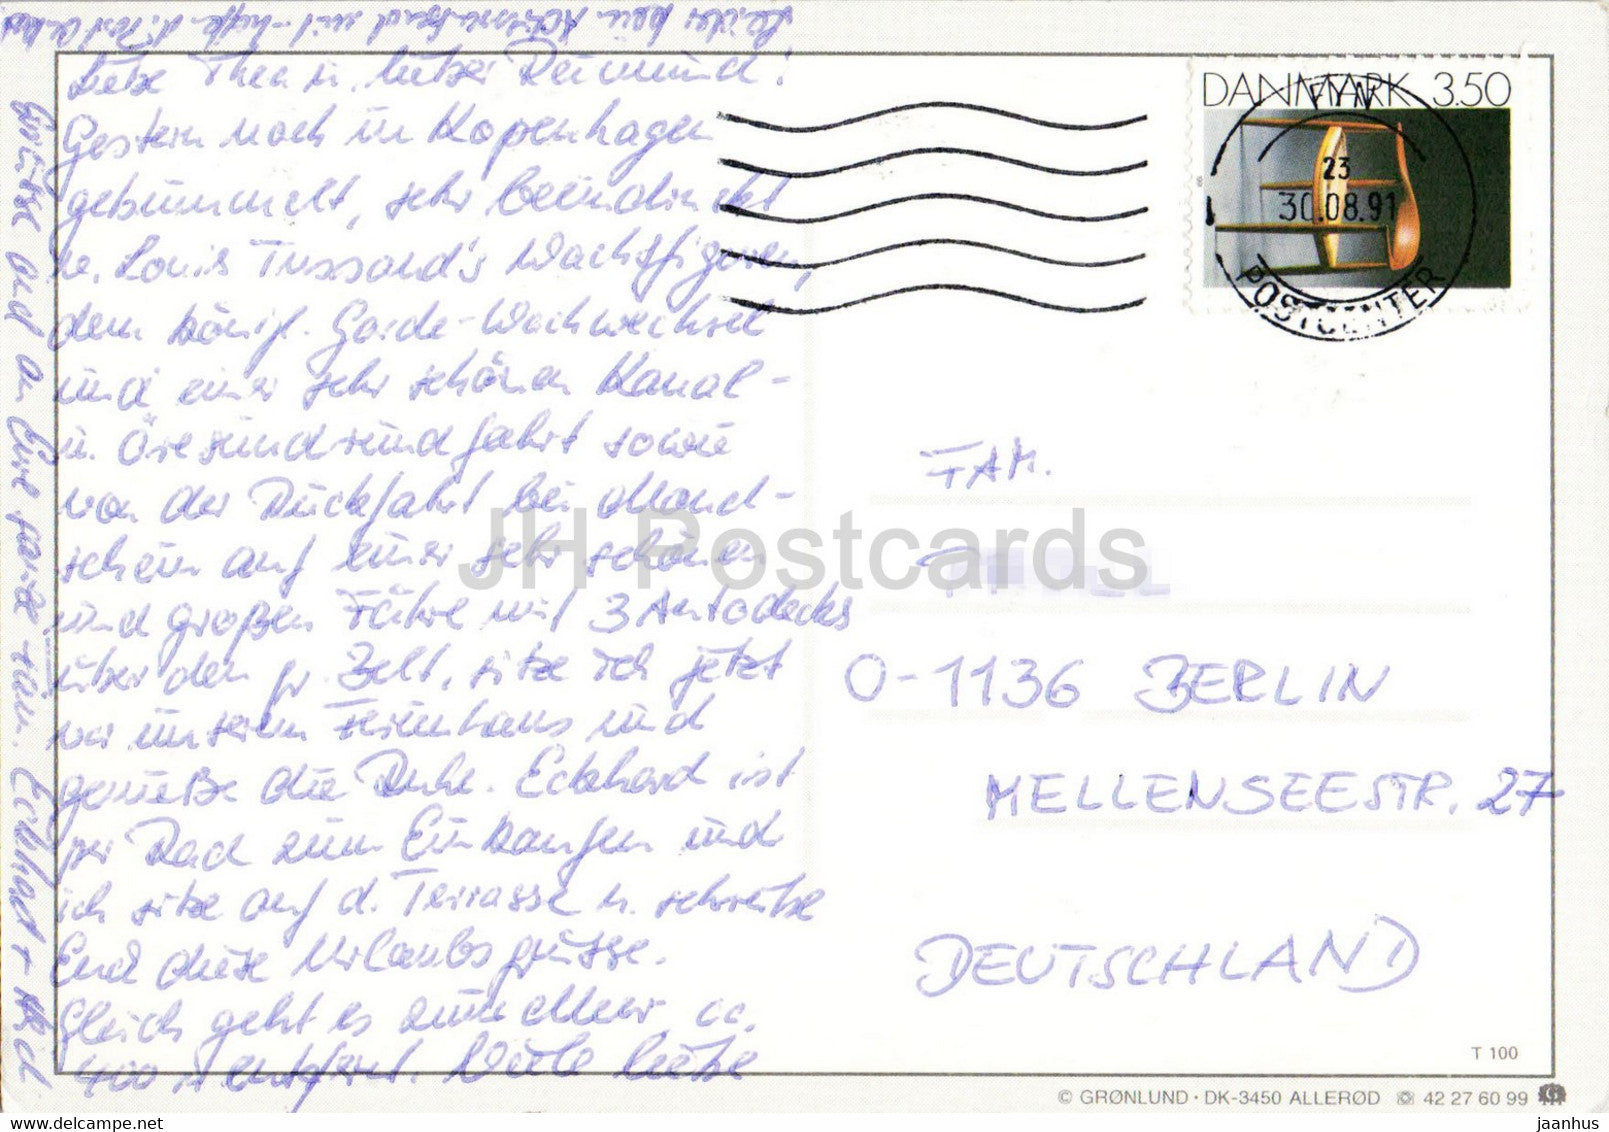 Liebe Thea u. lieber Reimund!
Gestern noch in Kopenhagen
gebummelt, sehr beeindruckt
v. Louis Tussaud's Wachsfiguren,
dem königl. Garde-Wachwechsel
und einer sehr schönen Kanal-
u. Öresundrundfahrt sowie
von der Rückfahrt bei Mond-
schein auf einer sehr schönen
und großen Fähre mit 3 Autodecks
über den gr. Belt, sitze ich jetzt
vor unserem Ferienhaus und
genieße die Ruhe. Eckhard ist
per Rad zum Einkaufen und
ich sitze auf d. Terrasse u. schreibe
Euch diese Urlaubsgrüsse.
Gleich geht es zum Meer, ca.
400 m entfernt. Viele liebe
Grüße auch an Eure
Eckhard +
DANMARK 3.50
FYN
23
30.08.91
POSTCENTER
FAM.
O-1136 BERLIN
MELLENSEESTR. 27
DEUTSCHLAND
T 100
© GRØNLUND · DK-3450 ALLERØD ☏ 42 27 60 99
JH Postcards
www.hippostcard.com
jaanhus